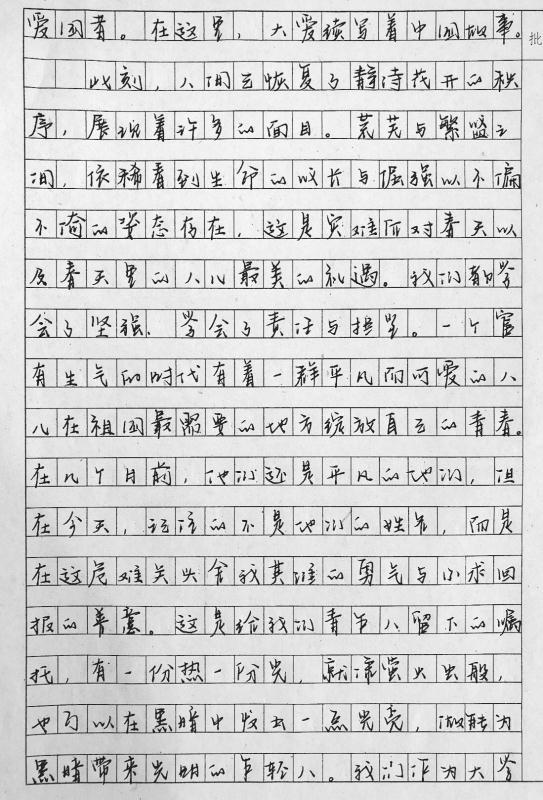 爱国者。在这里，大爱续写着中国故事。
批
此刻，人间已恢复了静待花开的秩
序，展现着许多的面目。荒芜与繁盛之
间，依稀看到生命的成长与倔强以不偏
不倚的姿态存在，这是灾难所对春天以
及春天里的人儿最美的礼遇。我们都学
会了坚强，学会了责任与担当。一个富
有生气的时代有着一群平凡而可爱的人
儿在祖国最需要的地方绽放自己的青春。
在几个月前，他们还是平凡的他们，但
在今天，记住的不是他们的姓名，而是
在这危难关头舍我其谁的勇气与不求回
报的善意。这是给我们青年人留下的嘱
托，有一份热一份光，就像萤火虫般，
也可以在黑暗中发出一点光亮，做能为
黑暗带来光明的年轻人。我们作为大学